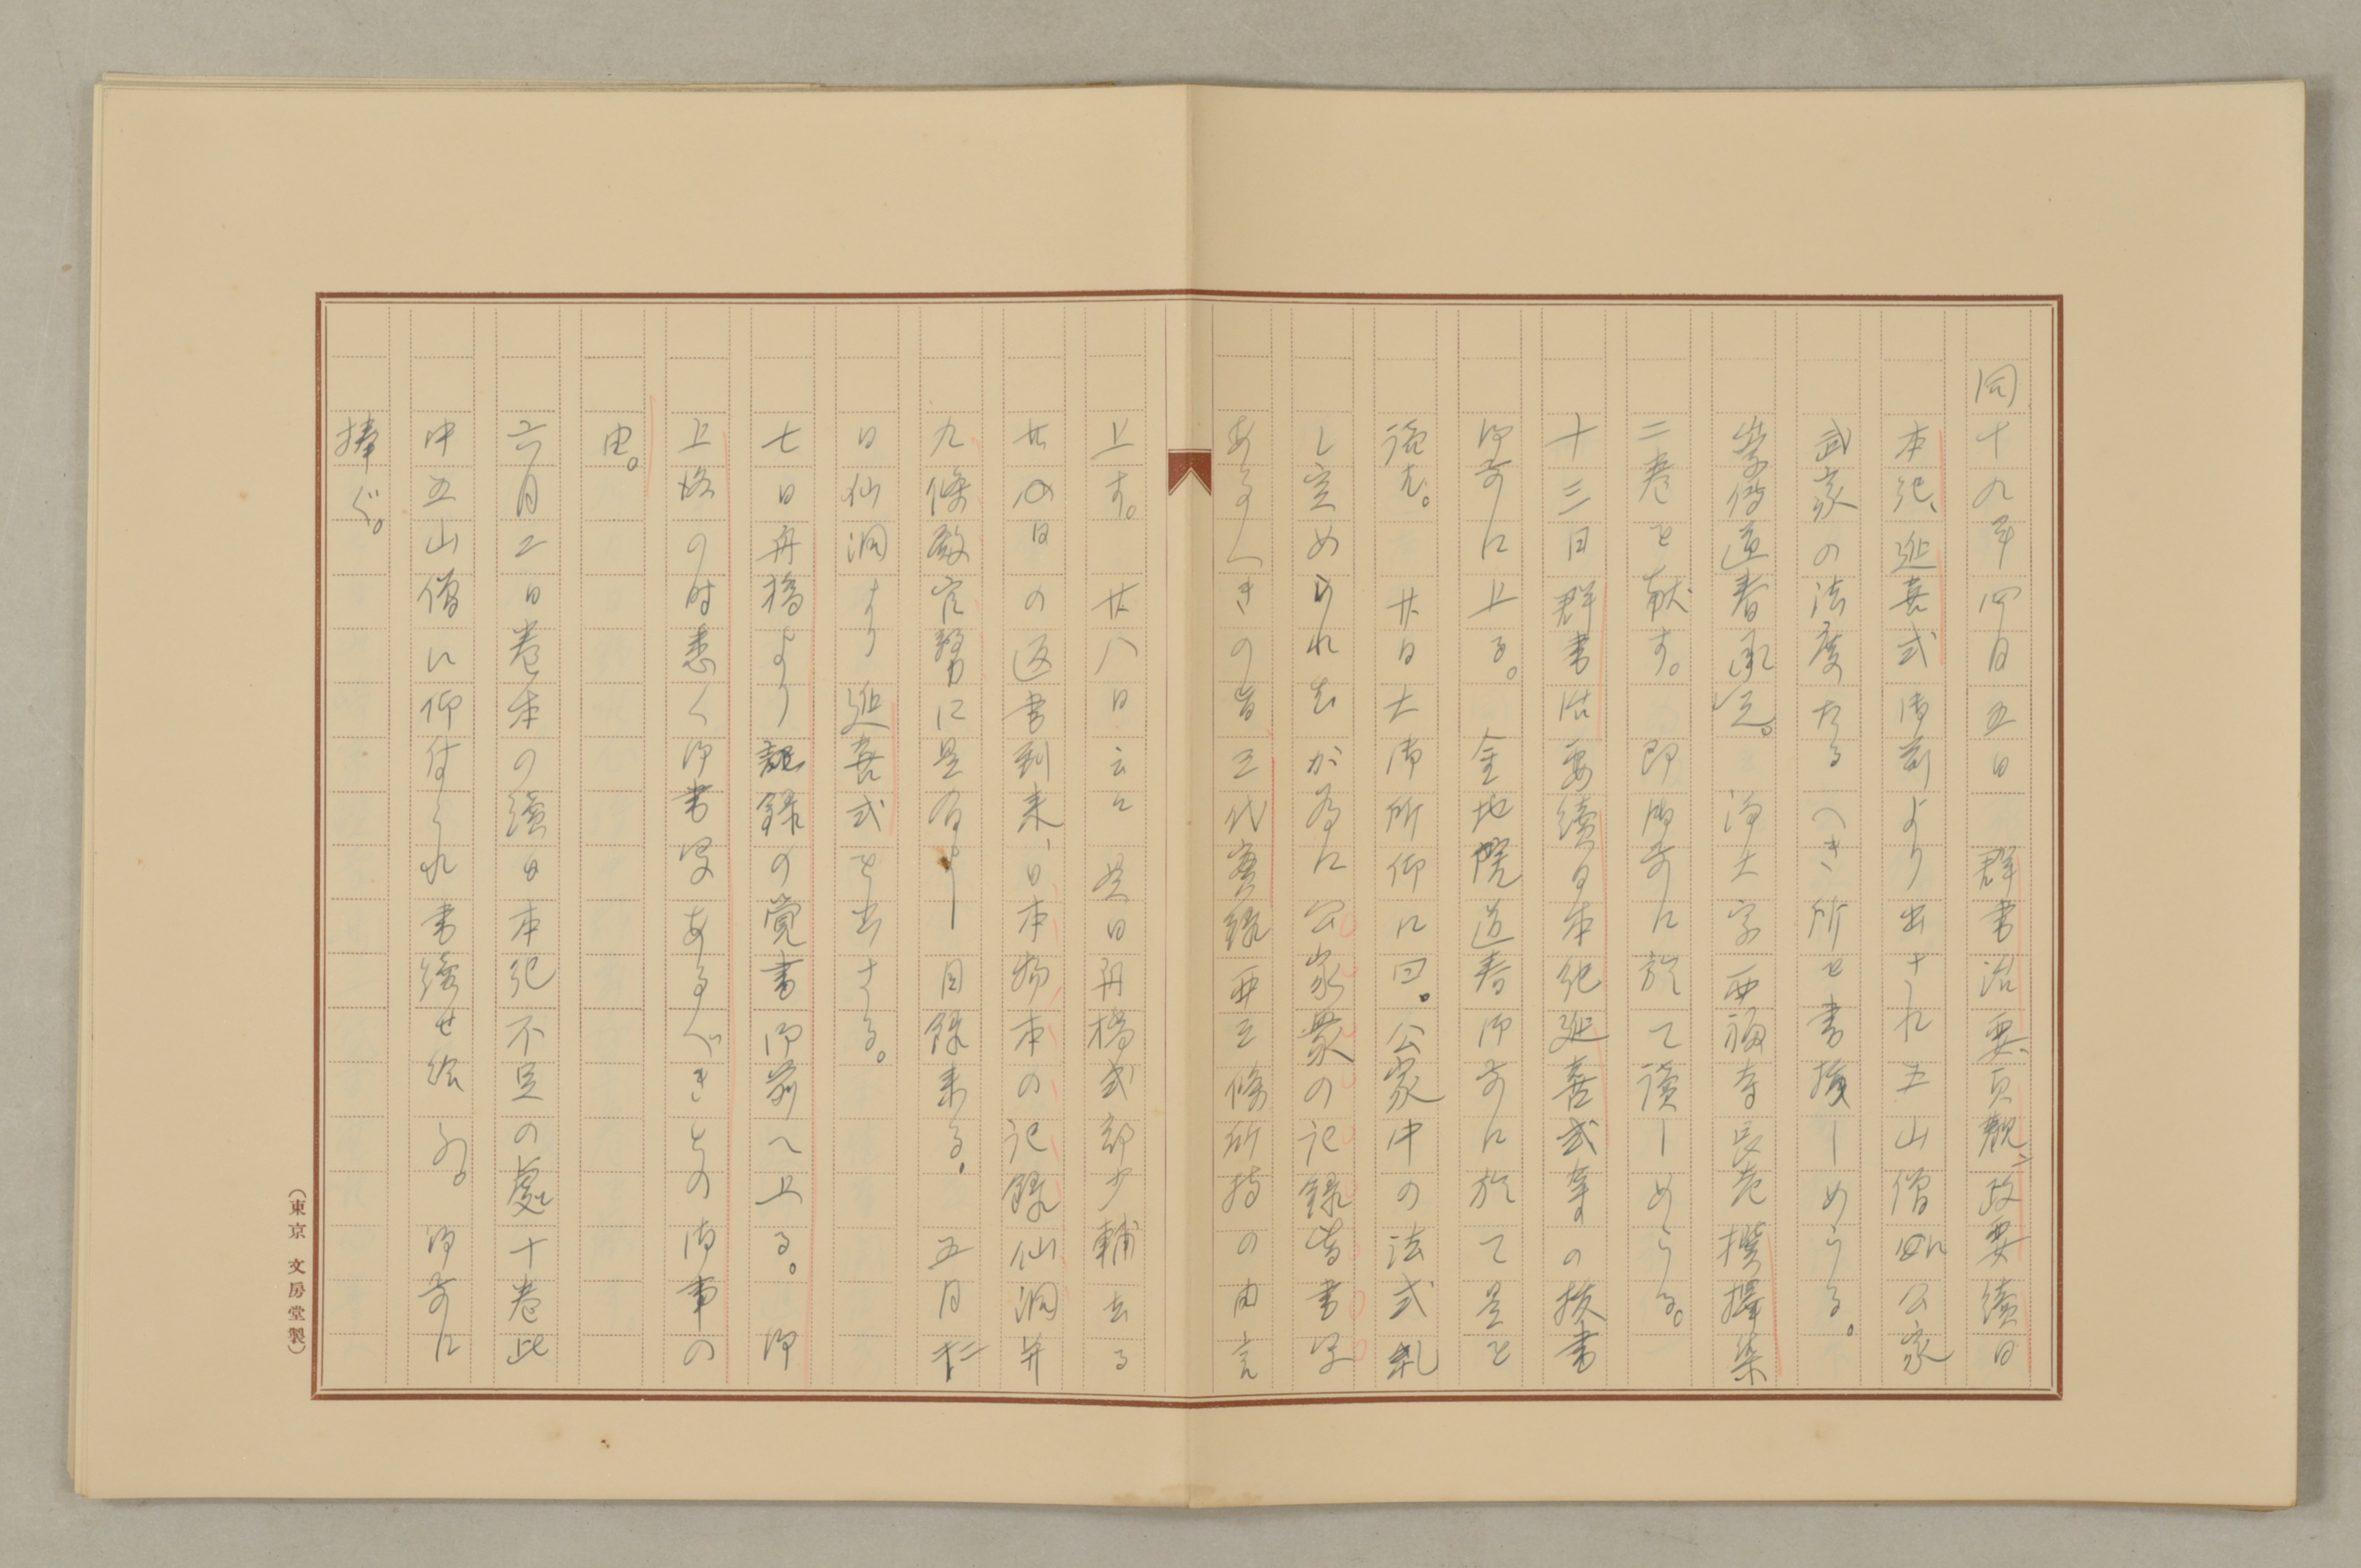 同十九年四月五日　群書治要、貞観政要、續日
本紀、延喜式御前より出され五山僧に公家
武家の法度たるへき所を書抜しめらる。
崇傳道春承之。　浄大字両福寺長老撰擇染
二巻を献す。　即御前に於て讀しめらる。
十三日群書治要續日本紀延喜式等の抜書
御前に上る。　金地院道春御前に於て是を
讀む。　廿日大御所仰に曰。公家中の法式糺
し定められむが為に公家衆の記録皆書写
あるへきの旨三代実録西三條所持の由言
上す。　廿八日云々　是日舟橋式部少輔去る
廿四日の返書到来、日本物本の記録仙洞并
九條殿官務に是有よし目録来る。　五月廿二
日仙洞より延喜式を出さる。
七日舟橋より記録の覚書御前へ上る。　御
上洛の時悉く御書写あるべきとの御事の
由。
六月二日巻本の續日本紀不足の處十巻此
中五山僧に仰付られ書續せ給ふ。　御前に
捧ぐ。
（東京　文房堂製）